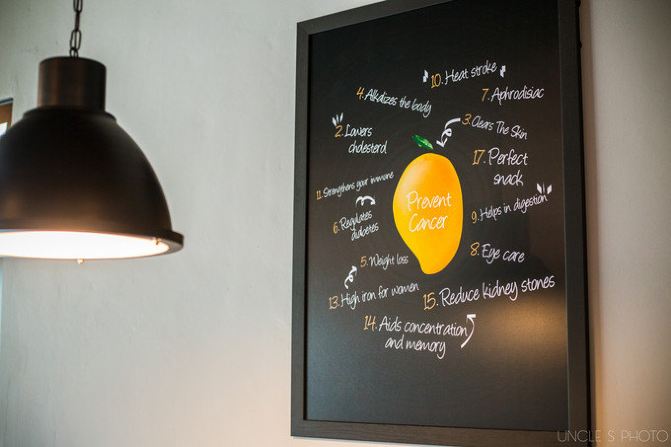 10. Heat stroke
4. Alkalizes the body
7. Aphrodisiac
2. Lowers
cholesterol
3. Clears The Skin
17. Perfect
snack
11. Strengthens your immune
Prevent
Cancer
6. Regulates
diabetes
9. Helps in digestion
5. Weight loss
8. Eye care
13. High iron for women
15. Reduce kidney stones
14. Aids concentration
and memory
UNCLE S PHOTO